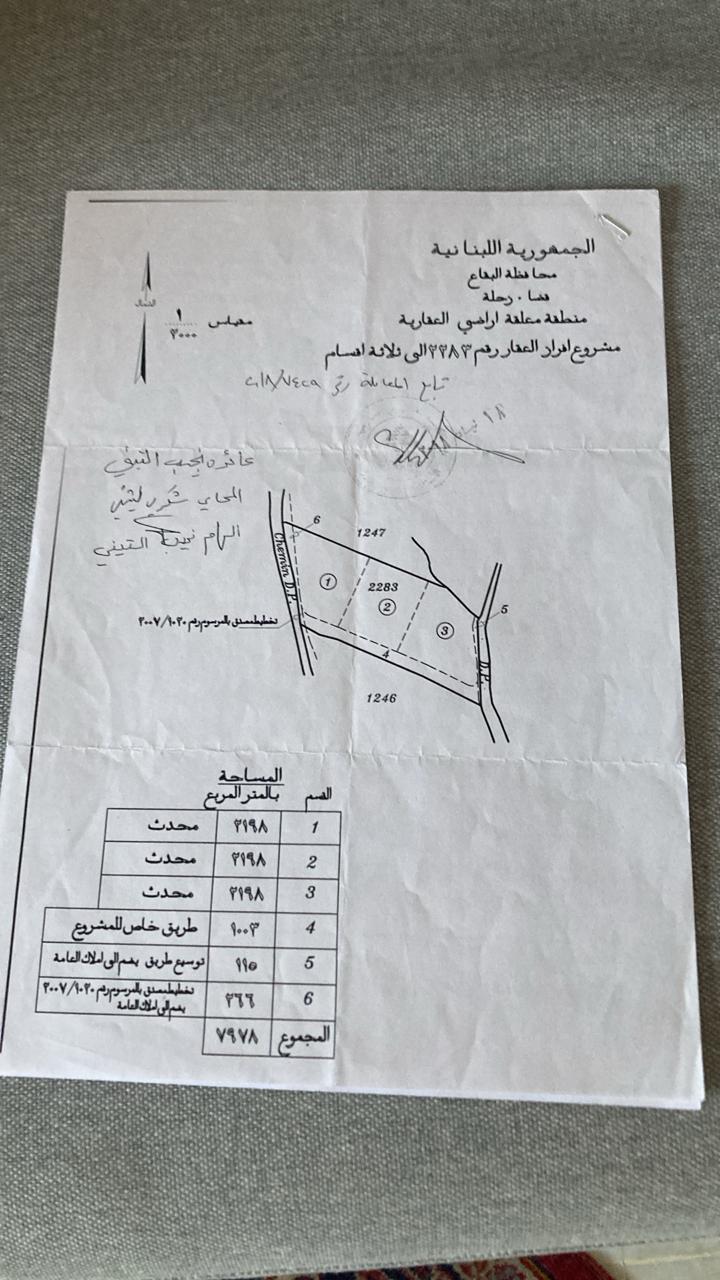 الجمهورية اللبنانية
محافظة البقاع
قضاء . زحلة
منطقة معلقة اراضي العقارية
مشروع افراز العقار رقم ٢٢٨٣ الى ثلاثة اقسام
تابع المعاملة رقم
مقياس ١/٣٠٠٠
الشمال
المحامي
الهام
6
1247
Chemin D.P.
1
2283
2
3
5
تخطيط مصدق بالمرسوم رقم ١٠٢٠/٢٠٠٧
4
D.P.
1246
القسم المساحة بالمتر المربع
1 ٢١٩٨ محدث
2 ٢١٩٨ محدث
3 ٢١٩٨ محدث
4 ١٠٠٣ طريق خاص للمشروع
5 ١١٥ توسيع طريق يضم الى املاك العامة
6 ٢٦٦ تخطيط مصدق بالمرسوم رقم ١٠٢٠/٢٠٠٧
يضم الى املاك العامة
المجموع ٧٩٧٨